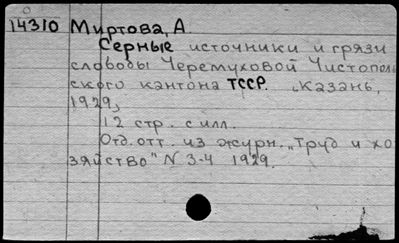 14310 Миртова, А.
Серные источники и грязи
слободы Черемуховой Чистополь
ского кантона ТССР. Казань,
1929,
12 стр. с илл.
Отд. отт. из журн. „Труд и хо
зяйство" N 3-4 1929.